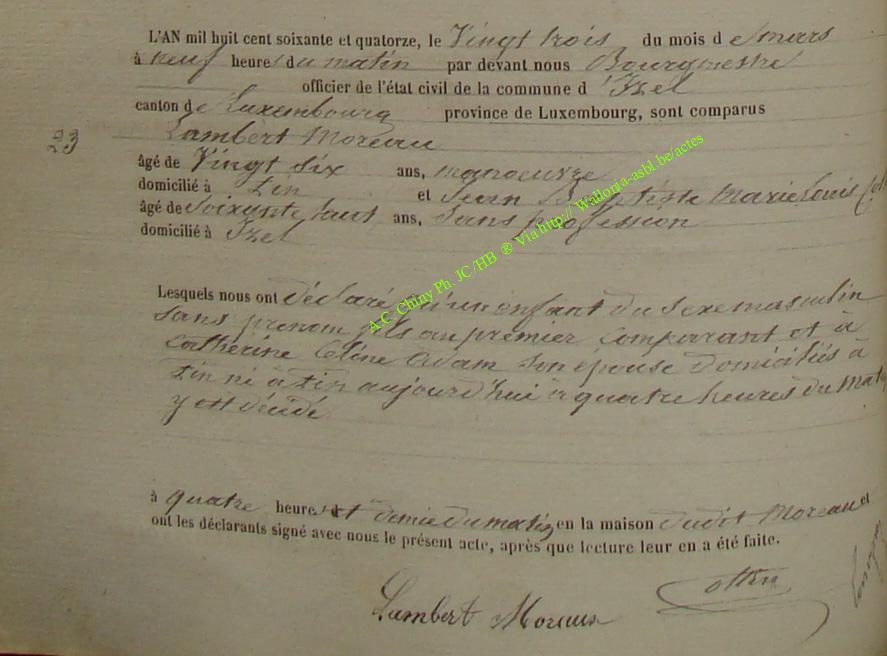 L'AN mil huit cent soixante et quatorze, le Vingt trois du mois d e mars
à neuf heures du matin par devant nous Bourgmestre
officier de l'état civil de la commune d 'Izel
canton de Luxembourg province de Luxembourg, sont comparus
23 Lambert Moreau
âgé de Vingt six ans, manoeuvre
domicilié à Pin et Jean Baptiste Marie Louis
âgé de Soixante huit ans, Sans profession
domicilié à Izel
Lesquels nous ont déclaré qu'un enfant du Sexe masculin
sans prénom fils au premier Comparant et à
Catherine Céline Adam son épouse domiciliés à
Pin né à Pin aujourd'hui à quatre heures du mat
y est décédé
à quatre heures et demie du matin en la maison dudit Moreau et
ont les déclarants signé avec nous le présent acte, après que lecture leur en a été faite.
Lambert Moreau
A.C. Chiny Ph. JC /HB ® Via http:// Wallonia-asbl.be/actes